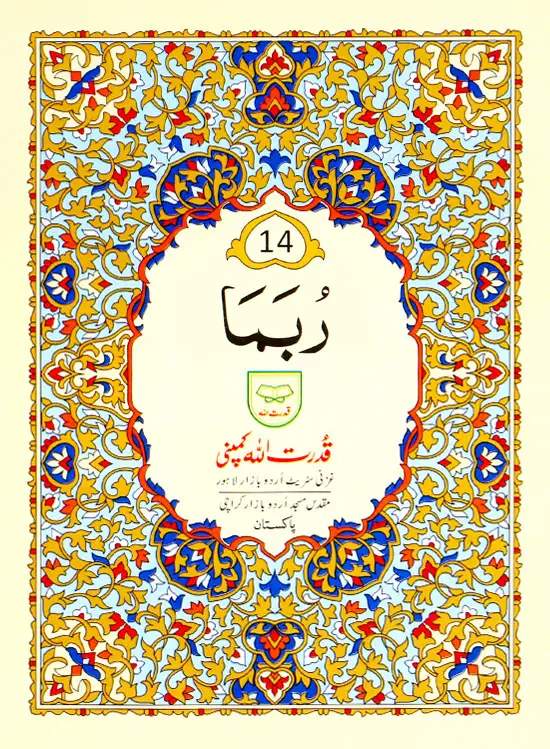 14
رُبَمَا
قدرت اللہ
قُدرت اللہ کمپنی
غزنی سٹریٹ اُردو بازار لاہور
مقدس مسجد اُردو بازار کراچی
پاکستان